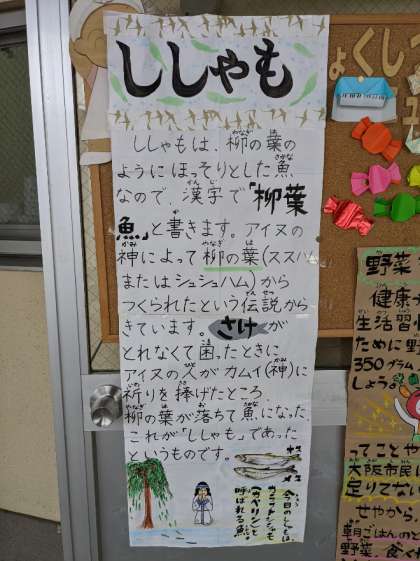 ししゃも
ししゃもは、柳の葉の
ようにほっそりとした魚
なので、漢字で「柳葉
魚」と書きます。アイヌの
神によって柳の葉(ススハム
またはシュシュハム)から
つくられたという伝説から
きています。さけが
とれなくて困ったときに
アイヌの人がカムイ(神)に
祈りを捧げたところ、
柳の葉が落ちて魚になった
これが「ししゃも」であった
というものです。
オス
メス
今日のししゃもは
カラフトししゃも
(カペリン)と
呼ばれる魚。
ょくじ
野菜
健康
生活習慣
ために野
350グラム
しょう。
ってことや
大阪市民に
足りてない
せやから、
朝ごはんのと
野菜、食べ